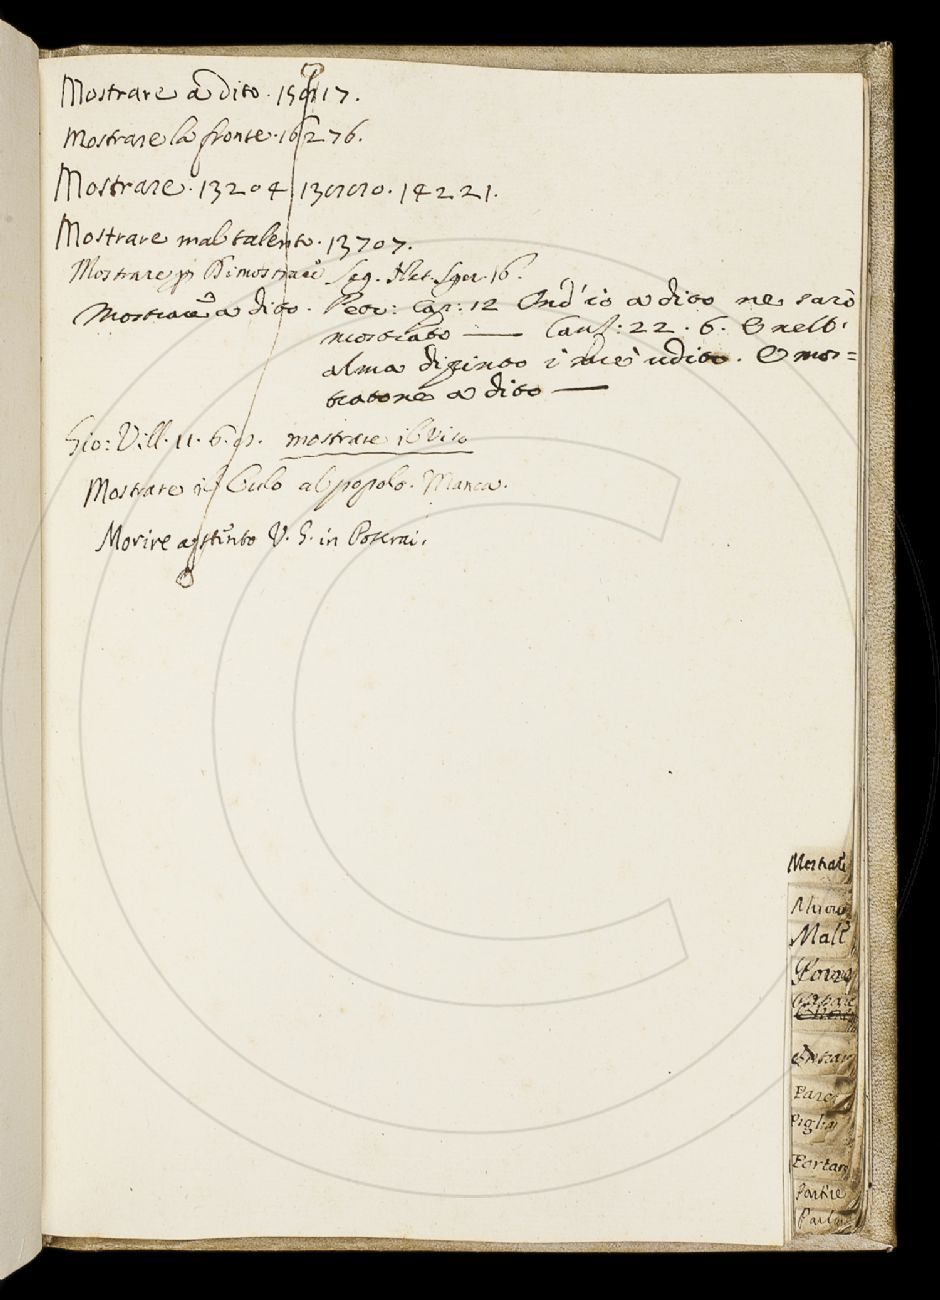 Mostrare a dito. 15917.
Mostrare la fronte. 16276.
Mostrare. 13204 14221.
Mostrare mal talento. 13707.
Mostrare p Dimostrare Seg. 16.
Mostrare a dito. Petr: Cap: 12 Ond'io a dito ne sarò
mostrato — Canz: 22. 6. E nell'
alma dipinto E mos=
tratone a dito —
Gio: Vill. 11. 6. mostrare il Viso
Mostrare il Culo al popolo. Manca.
Morire V. S. in
Mostrare
Muove
Mall
Pare
Piglia
Portar
Partire
Parla